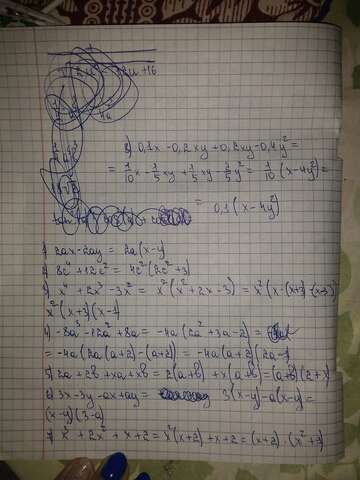 8) 0,1x - 0,2xy + 0,2xy - 0,4y² =
= 1/10 x - 1/5 xy + 1/5 xy - 2/5 y² = 1/10 (x - 4y²) =
= 0,1 (x - 4y²)
1) 2ax - 2ay = 2a(x-y)
2) 8c⁴ + 12c² = 4c²(2c² + 3)
3) x⁴ + 2x³ - 3x² = x²(x² + 2x - 3) = x²(x·(x+3) - (x+3))
x²(x+3)(x-1)
4) -8a³ - 12a² + 8a = -4a(2a² + 3a - 2) =
= -4a(2a(a+2) - (a+2)) = -4a(a+2)(2a-1)
5) 2a + 2b + xa + xb = 2(a+b) + x(a+b) = (a+b)(2+x)
6) 3x - 3y - ax + ay = 3(x-y) - a(x-y) =
(x-y)(3-a)
7) x³ + 2x² + x + 2 = x²(x+2) + x + 2 = (x+2)·(x²+1)